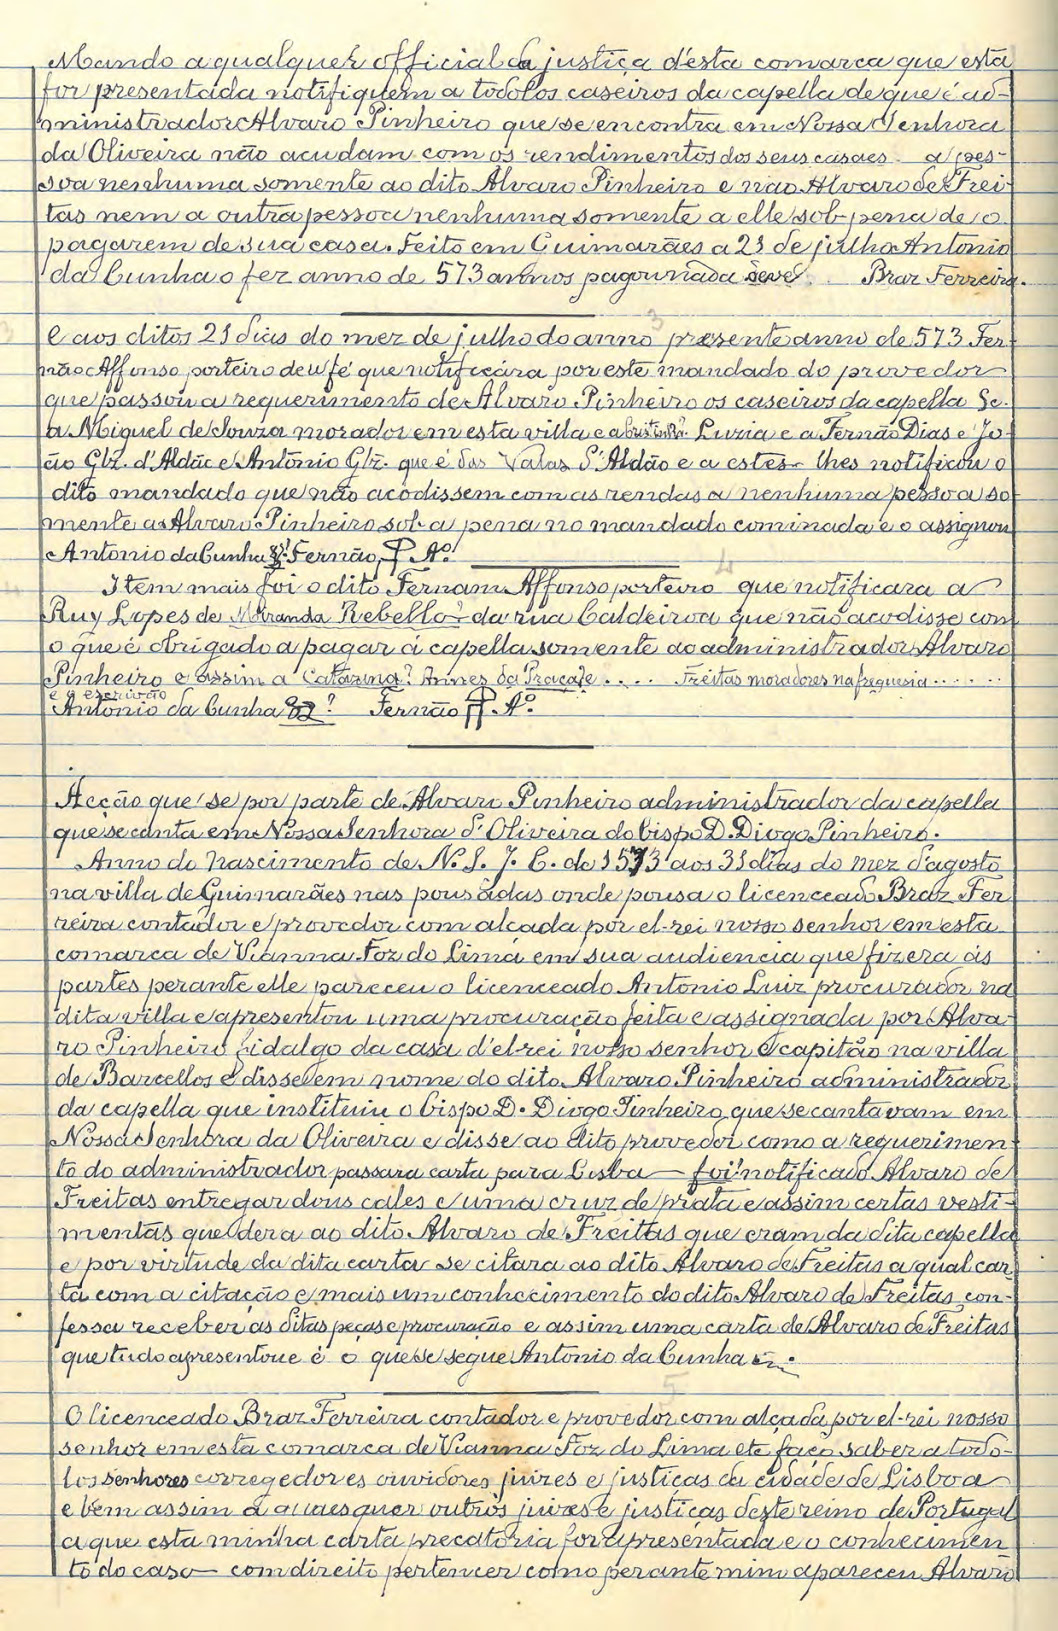 Mando a qualquer official da justiça d'esta comarca que esta
for presentada notifiquem a todolos caseiros da capella de que é ad-
ministrador Alvaro Pinheiro que se encontra em Nossa Senhora
da Oliveira não acudam com os rendimentos dos seus casaes a pes-
soa nenhuma somente ao dito Alvaro Pinheiro e nao Alvaro de Frei-
tas nem a outra pessoa nenhuma somente a elle sob pena de o
pagarem de sua casa. Feito em Guimarães a 21 de julho Antonio
da Cunha o fez anno de 573 annos pagou nada Braz Ferreira.
E aos ditos 21 dias do mez de julho do anno presente anno de 573 Fer-
não Affonso porteiro deu fé que notificára por este mandado do provedor
que passou a requerimento de Alvaro Pinheiro os caseiros da capella Sc.
a Miguel de Souza morador em esta villa e a Luzia e a Fernão Dias e Jo-
ão Glz. d'Aldão e Antonio Glz. que é das Valas d'Aldão e a estes lhes notificou o
dito mandado que não acodissem com as rendas a nenhuma pessoa so-
mente a Alvaro Pinheiro sob a pena no mandado cominada e o assignou
Antonio da Cunha Fernão A.º
Item mais foi o dito Fernam Affonso porteiro que notificara a
Ruy Lopes de Miranda Rebello? da rua Caldeiroa que não acodisse com
o que é obrigado a pagar á capella somente ao administrador Alvaro
Pinheiro e assim a Catarina? Annes da Praça? e .... Freitas moradores na freguesia ......
e o escrivão
Antonio da Cunha ? Fernão A.º
Acção que se por parte de Alvaro Pinheiro administrador da capella
que se canta em Nossa Senhora d'Oliveira do bispo D. Diogo Pinheiro.
Anno do nascimento de N. S. J. C. de 1573 aos 31 dias do mez d'agosto
na villa de Guimarães nas pousadas onde pousa o licenceado Braz Fer-
reira contador e provedor com alçada por el-rei nosso senhor em esta
comarca de Vianna Foz do Lima em sua audiencia que fizera ás
partes perante elle pareceu o licenceado Antonio Luiz procurador na
dita villa e apresentou uma procuração feita e assignada por Alva-
ro Pinheiro fidalgo da casa d'el-rei nosso senhor e capitão na villa
de Barcellos e disse em nome do dito Alvaro Pinheiro administrador
da capella que instituiu o bispo D. Diogo Pinheiro que se cantavam em
Nossa Senhora da Oliveira e disse ao dito provedor como a requerimen-
to do administrador passara carta para Lisboa — foi? notificado Alvaro de
Freitas entregar dous cales e uma cruz de prata e assim certas vesti-
mentas que dera ao dito Alvaro de Freitas que eram da dita capella
e por virtude da dita carta se citara ao dito Alvaro de Freitas a qual car-
ta com a citação e mais um conhecimento do dito Alvaro de Freitas, con-
fessa receber as ditas peças e procuração e assim uma carta de Alvaro de Freitas
que tudo apresentou e é o que se segue Antonio da Cunha
O licenceado Braz Ferreira contador e provedor com alçada por el-rei nosso
senhor em esta comarca de Vianna Foz do Lima etc faço saber a todo-
los senhores corregedores ouvidores, juizes e justiças da cidade de Lisboa
e bem assim a quaesquer outros juizes e justiças deste reino de Portugal
a que esta minha carta precatoria for apresentada e o conhecimen-
to do caso — com direito pertencer como perante mim apareceu Alvaro